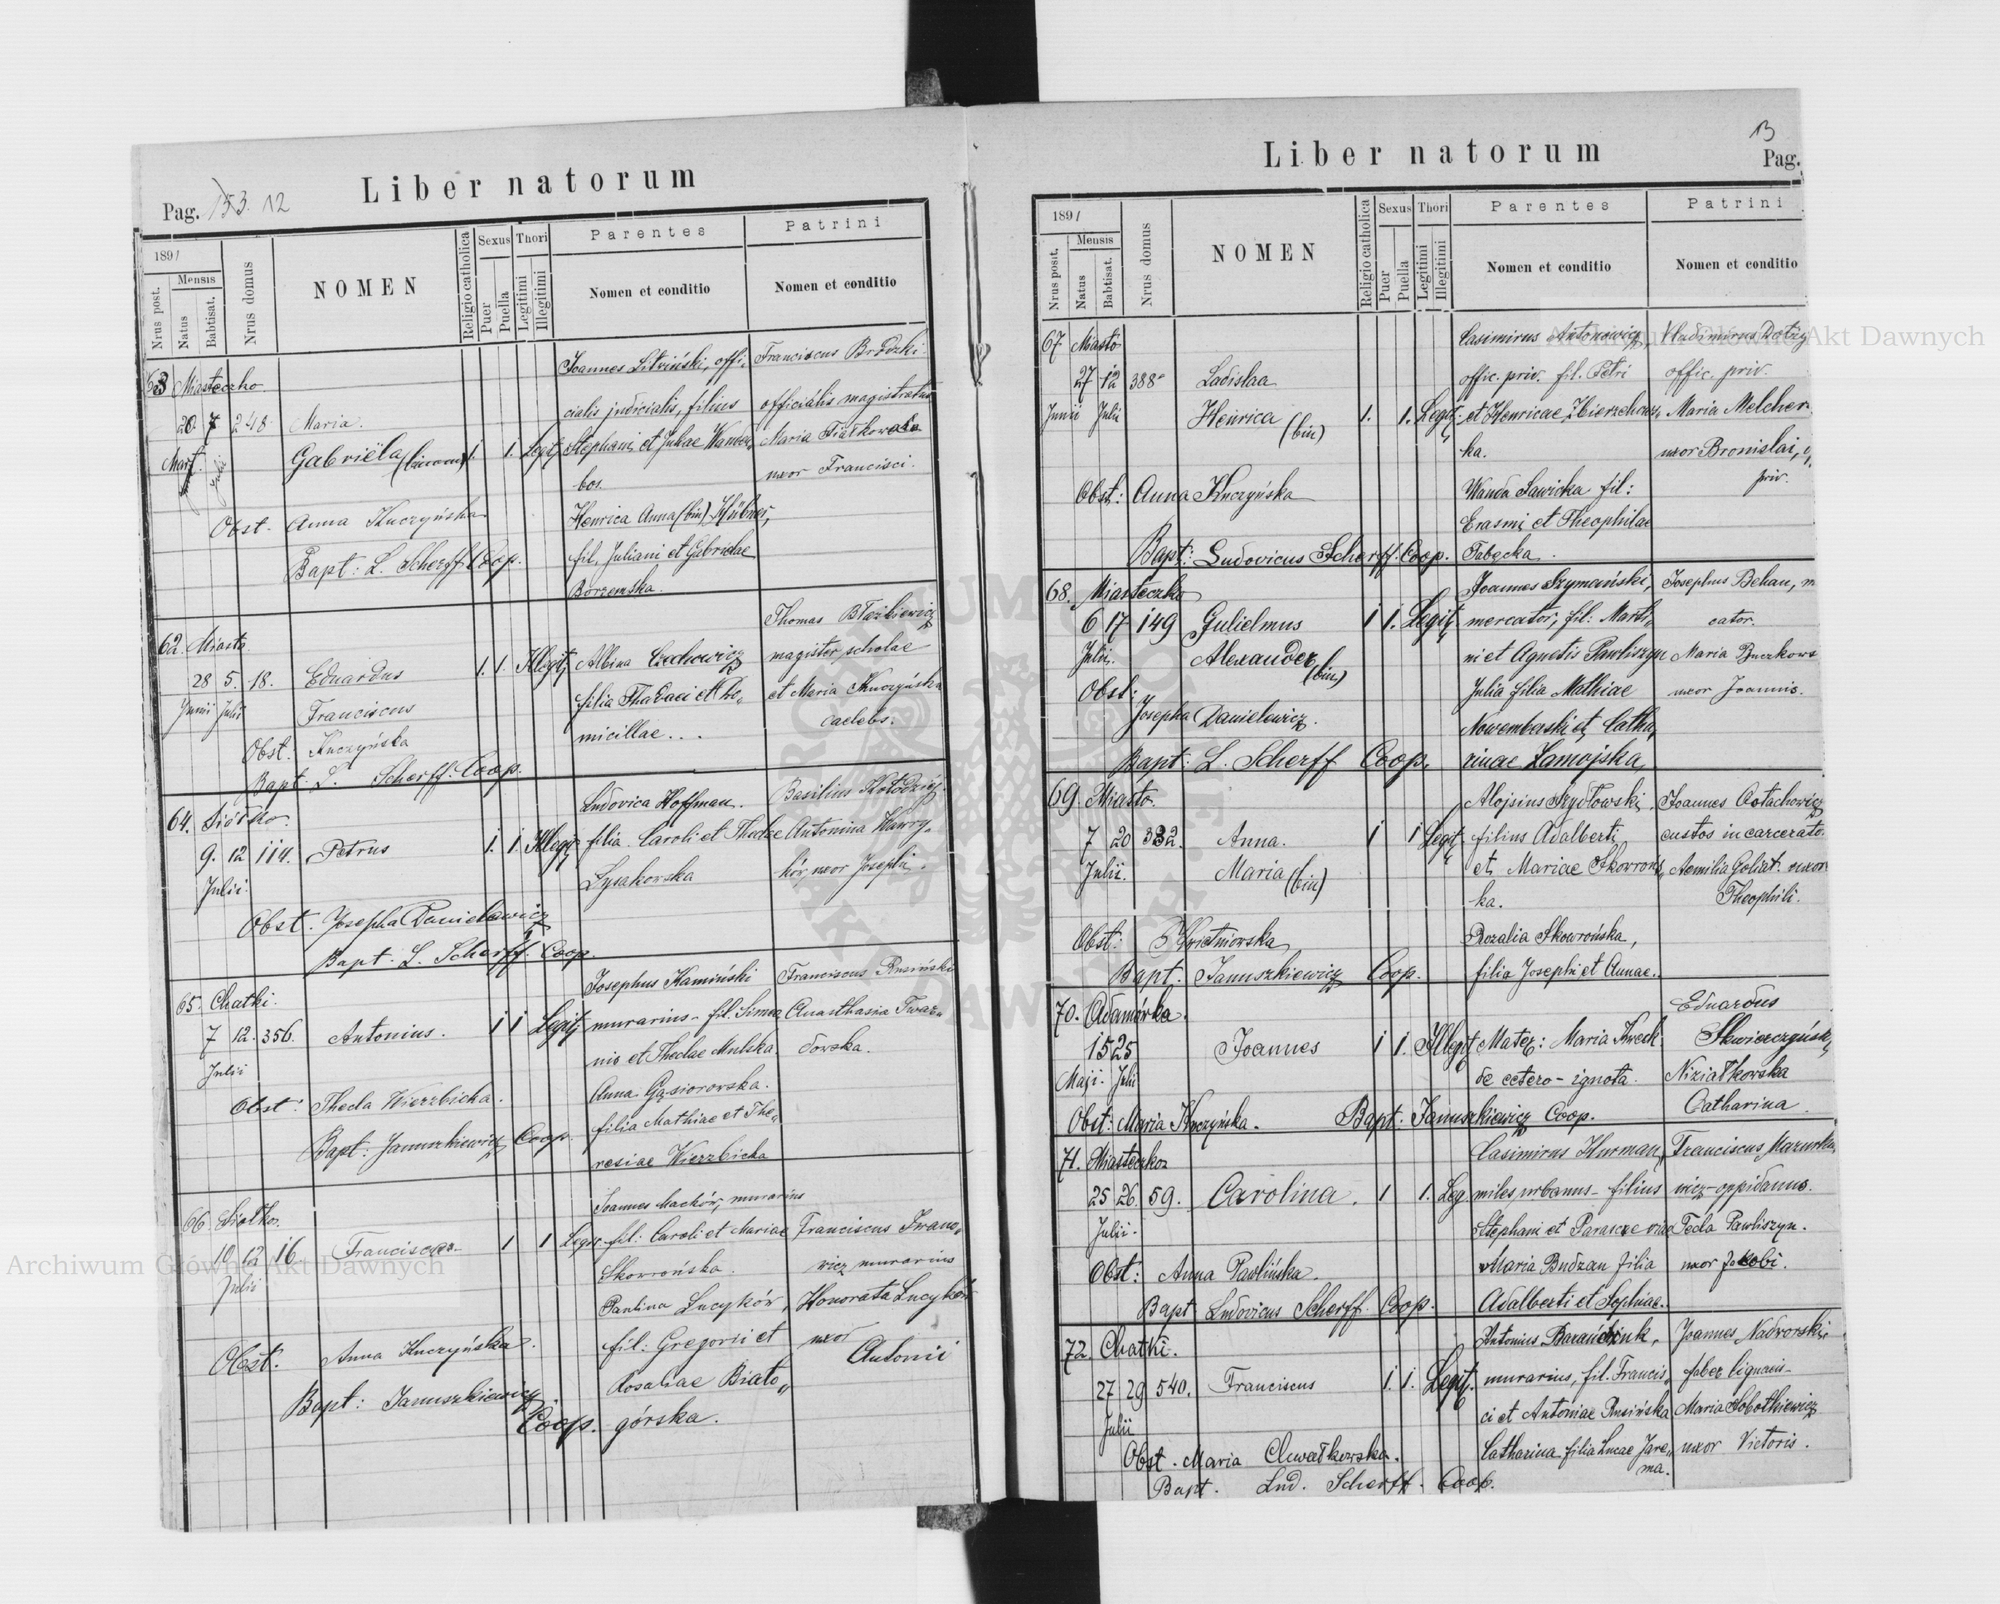 Pag. 153. 12
Liber natorum
1891
Nrus post.
Mensis
Natus
Babtisat.
Nrus domus
NOMEN
Religio catholica
Sexus
Puer
Puella
Thori
Legitimi
Illegitimi
Parentes
Nomen et conditio
Patrini
Nomen et conditio
63 Miasteczko
20 7 248
Mart.
Maria.
Gabriela
1. 1. Legit.
Joannes Litwiński, offi„
cialis judicialis, filius
Stephani et Juliae
bos.
Henrica Anna (bin) Hübner,
fil. Juliani et Gabrielae
Borzemska.
Franciscus Brodzki
officialis magistratus
Maria Fiałkowska
uxor Francisci.
Obst. Anna Kuczyńska
Bapt: L. Scherff. Coop.
62. Miasto
28 5. 18.
Junii Julii
Eduardus
Franciscus
1. 1. Illegit.
Albina Czechowicz
filia Thadaei et Do„
micillae...
Thomas Błażkiewicz
magister scholae
et Maria Kuczyńska
caelebs.
Obst. Kuczyńska
Bapt. L. Scherff. Coop.
64. Siółko.
9. 12 114.
Julii.
Petrus
1. 1. Illegit.
Ludovica Hoffman.
filia Caroli et Theclae
Lysakowska
Basilius Kołodziej
Antonina Hawry„
ków, uxor Josephi.
Obst. Josepha Danielewicz
Bapt. L. Scherff. Coop.
65. Chatki.
7 12. 356.
Julii
Antonius.
1 1 Legit.
Josephus Kamiński
murarius - fil. Simeo
nis et Theclae Mulska.
Anna Gąsiorowska.
filia Mathiae et The„
resiae Wierzbicka
Franciscus Rusiński
Anasthasia Twar„
dowska.
Obst: Thecla Wierzbicka.
Bapt: Januszkiewicz Coop.
66. Siółko.
10 12 16
Julii
Franciscus
1 1 Legit.
Joannes Maćków, murarius
fil: Caroli et Mariae
Skowrońska.
Paulina Lucyków,
fil: Gregorii et
Rosaliae Biało„
górska.
Franciscus Iwano„
wicz murarius
Honorata Lucyków
uxor
Antonii
Obst. Anna Kuczyńska.
Bapt: Januszkiewicz
Coop.
13
Liber natorum
Pag.
1891
Nrus posit.
Mensis
Natus
Babtisat.
Nrus domus
NOMEN
Religio catholica
Sexus
Puer
Puella
Thori
Legitimi
Illegitimi
Parentes
Nomen et conditio
Patrini
Nomen et conditio
67 Miasto
27 12 388
Junii Julii
Ladislaa
Henrica (bin)
1. 1. Legit.
Casimirus Antonowicz,
offic. priv. fil. Petri
et Henricae Zbierzchows„
ka.
Wanda Sawicka fil:
Erasmi et Theophilae
Tabęcka.
Vladimirus
offic. priv.
Maria Melcher
uxor Bronislai, o.
priv.
Obst: Anna Kuczyńska
Bapt: Ludovicus Scherff. Coop.
68. Miasteczko
6 17 149
Julii.
Gulielmus
Alexander (bin)
1 1. Legit.
Joannes Szymański,
mercator, fil: Marti„
ni et Agnetis Pawliszyn
Julia filia Mathiae
Nowemberski et Catha„
rinae Zamojska,
Josephus Behau, m
cator.
Maria Buczkows
uxor Joannis.
Obst: Josepha Danielewicz.
Bapt: L. Scherff Coop.
69. Miasto.
7 20 382.
Julii.
Anna.
Maria (bin)
1 1 Legit.
Alojsius Szydłowski,
filius Adalberti
et Mariae Skowrons„
ka.
Rozalia Skowrońska,
filia Josephi et Annae.
Joannes Ostachowicz
custos incarcerato.
Aemilia Goliat uxor
Theophili.
Obst: Kwietniowska
Bapt. Januszkiewicz Coop.
70. Adamówka.
15 25
Maji. Julii
Joannes
1 1. Illegit.
Mater: Maria
de cetero - ignota.
Eduardus
Skwierczyński,
Niziałkowska
Catharina
Obst: Maria Kuczyńska. Bapt: Januszkiewicz Coop.
71. Miasteczko
25 26. 59.
Julii.
Carolina.
1 1. Leg.
Casimirus Hurman,
miles urbanus - filius
Stephani et Parascevia
Maria Budzan filia
Adalberti et Sophiae.
Franciscus Mazurkie
wicz - oppidanus.
Tecla Pawliszyn.
uxor Jacobi.
Obst: Anna Pawlińska.
Bapt Ludovicus Scherff. Coop.
72. Chatki.
27 29 540.
Julii
Franciscus
1. 1. Legit.
Antonius
murarius, fil. Francis„
ci et Antoniae Rusińska
Catharina filia Lucae Jare„
ma.
Joannes Nadworski
faber lignaris
Maria Sobotkiewicz
uxor Victoris.
Obst. Maria Chwałkowska.
Bapt. Lud. Scherff. Coop.
Archiwum Główne Akt Dawnych
Archiwum Główne Akt Dawnych
ARCHIWUM GŁÓWNE AKT DAWNYCH